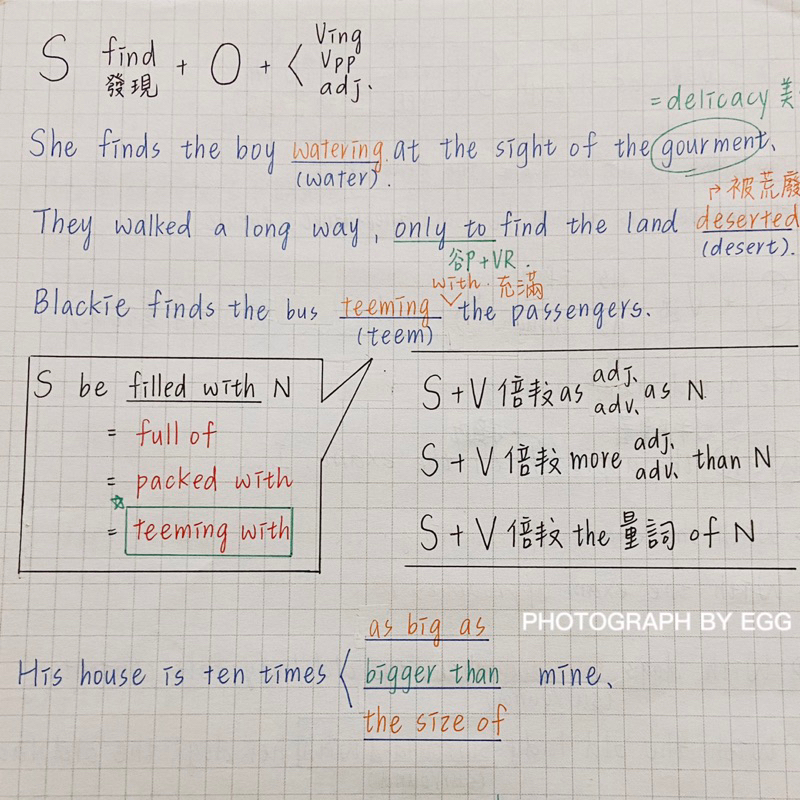 S find + O + < Ving
發現 Vpp
adj.
= delicacy 美
She finds the boy watering at the sight of the gourment.
(water).
→ 被荒廢
They walked a long way, only to find the land deserted
(desert).
P + VR.
with 充滿
Blackie finds the bus teeming the passengers.
(teem)
S be filled with N
= full of
= packed with
☆
= teeming with
S + V 倍數 as adj. as N
adv.
S + V 倍數 more adj. than N
adv.
S + V 倍數 the 量詞 of N
PHOTOGRAPH BY EGG
as big as
His house is ten times < bigger than mine.
the size of